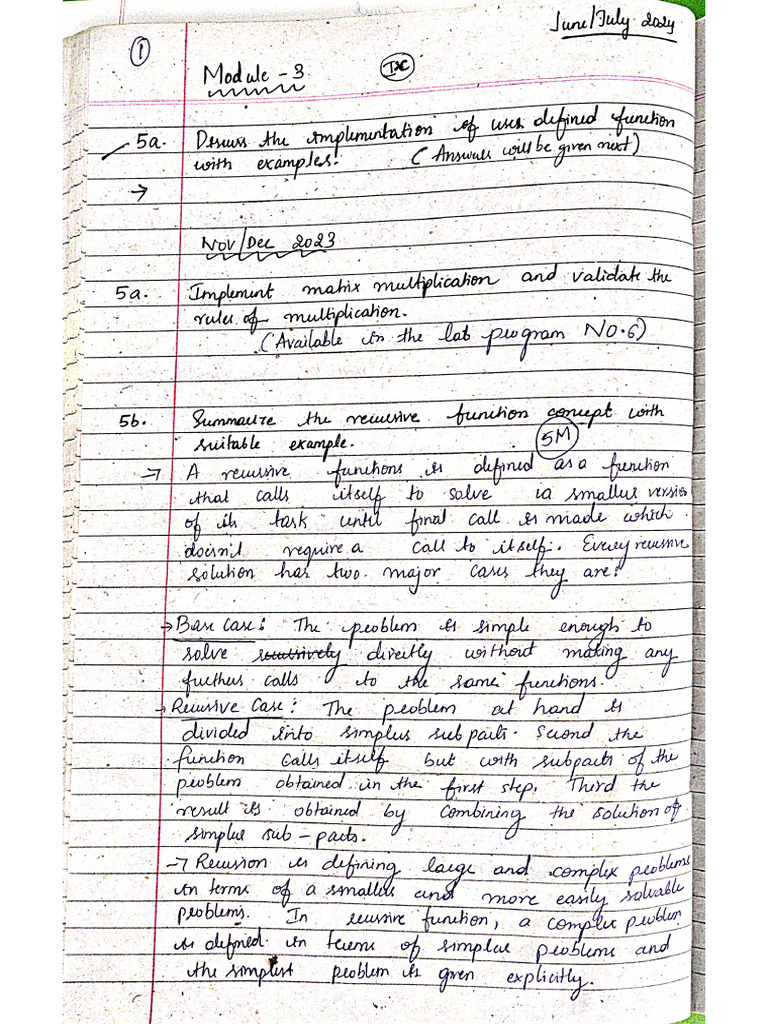 June/July 2024
①
Module - 3
5a. Discuss the implementation of user defined function
with examples.
(Answers will be given next)
→
Nov/Dec 2023
5a. Implement matrix multiplication and validate the
rules of multiplication.
(Available in the lab program NO.6)
5b. Summarize the recursive function concept with
suitable example.
5M
→ A recursive functions is defined as a function
that calls itself to solve a smaller version
of its task until final call is made which
doesn't require a call to itself. Every recursive
solution has two major cases they are:
→ Base case: The problem is simple enough to
solve recursively directly without making any
further calls to the same functions.
→ Recursive Case: The problem at hand is
divided into simpler subparts. Second the
function calls itself but with subparts of the
problem obtained in the first step. Third the
result is obtained by combining the solution of
simpler sub-parts.
→ Recursion is defining large and complex problems
in terms of a smaller and more easily solvable
problems. In recursive function, a complex problem
is defined in terms of simpler problems and
the simplest problem is given explicitly.